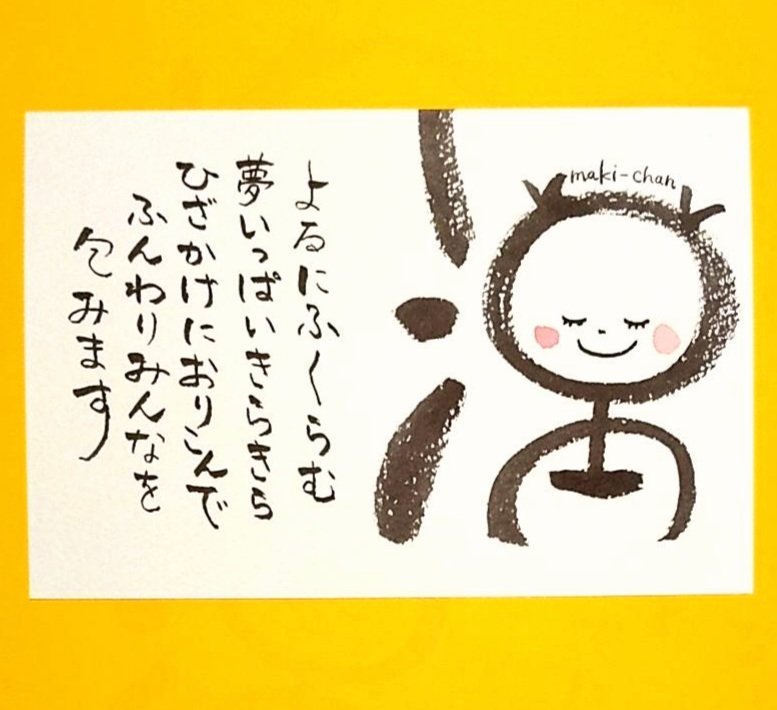 maki-chan
よるにふくらむ
夢いっぱいきらきら
ひざかけにおりこんで
ふんわりみんなを
包みます